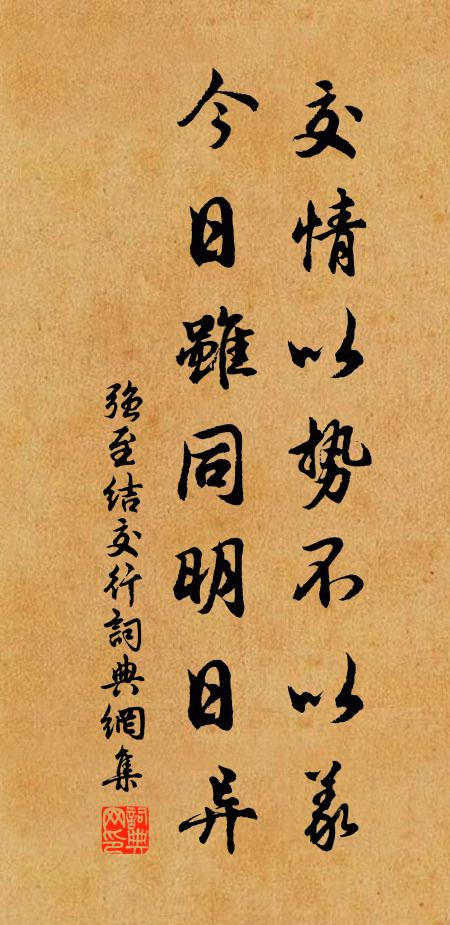 交情以势不以义
今日雖同明日异
强至结交行詞典網集
詞典网印